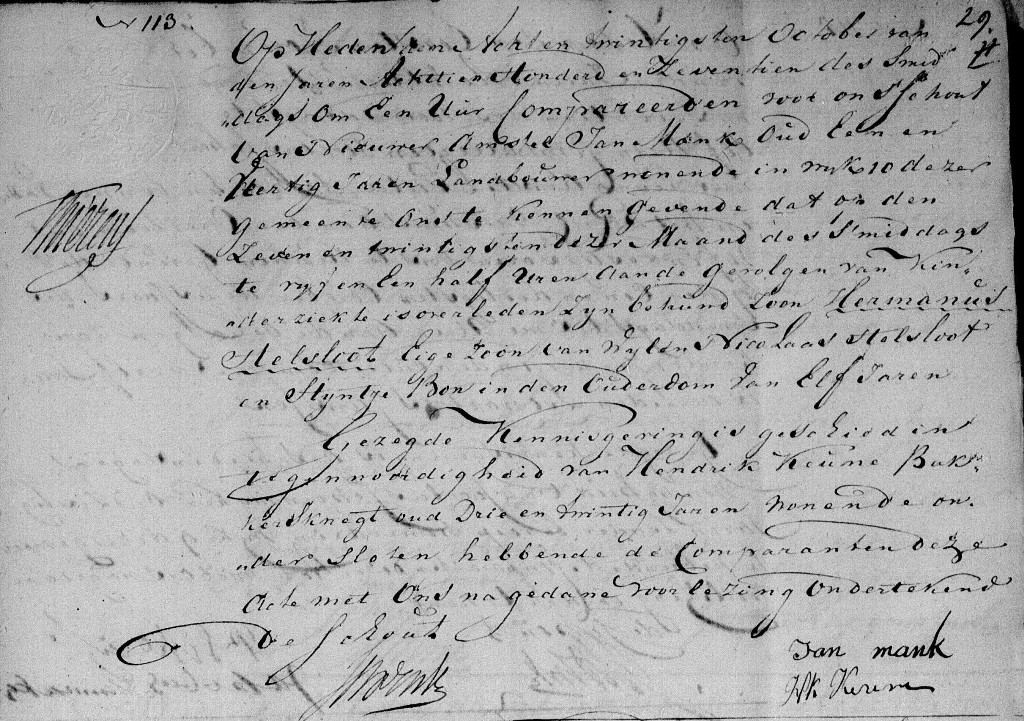 N 113
29.
Op Heden dene Acht en twintigsten October van
den Jaren Achttien Honderd en Zeventien des Smid
„dags Om Een Uur Compareerden voor ons Schout
van Nieuwer Amstel Jan Mank Oud Een en
Veertig Jaren Landbouwer wonende in wyk 10 dezer
gemeente Ons te kennen gevende dat op den
Zeven en twintigsten dezer Maand des Smiddags
te vyf en Een half Uren Aan de gevolgen van Kin„
„derziekte is overleden Zyn behuud Zoon Hermanus
Stelsloot Eige Zoon van Wylen Nicolaas Stelsloot
en Styntje Bon in den Ouderdom van Elf Jaren
Gezegde Kennisgeving is geschied in
tegenwoordigheid van Hendrik Keune Bak„
kersknegt oud Drie en twintig Jaren wonende on„
„der Sloten hebbende de Comparanten deze
Acte met Ons na gedane voorlezing Ondertekend
De Schout
Jan mank
Hk Keune